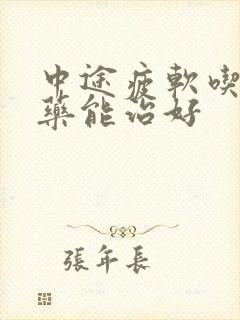 中途疲軟喫
藥能治好
張年長